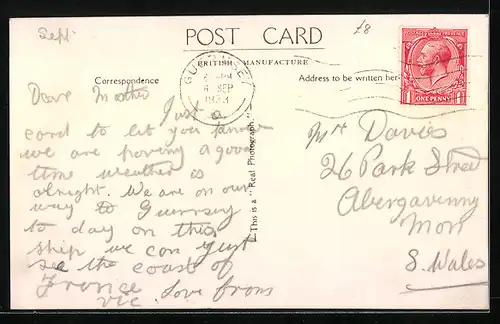 Sept
£8
POST CARD
BRITISH MANUFACTURE
Correspondence
Address to be written here
GUERNSEY
6 SEP
1933
POSTAGE REVENUE
1 ONE PENNY 1
Dear Mother
Just a
card to let you know
we are having a good
time weather is
alright. We are on our
way to Guernsey
to day on this
ship we can just
see the coast of
France
love from
Vic.
This is a "Real Photograph."
Mrs Davies
26 Park Street
Abergavenny
Mon
S. Wales